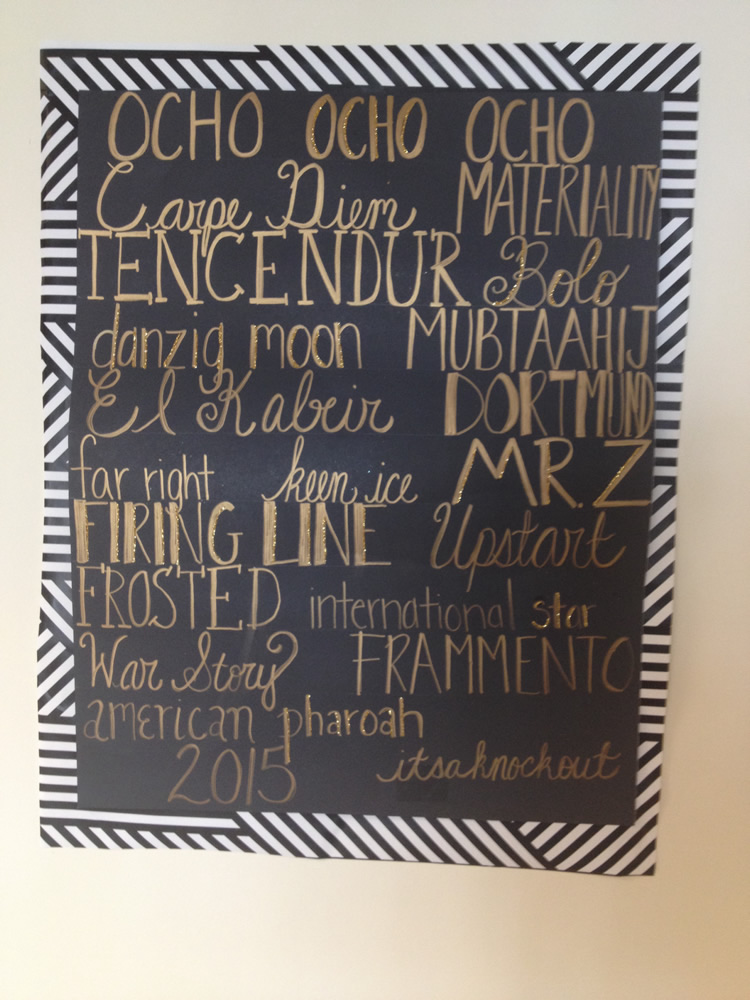 OCHO OCHO OCHO
Carpe Diem MATERIALITY
TENCENDUR Bolo
danzig moon MUBTAAHIJ
El Kabeir DORTMUND
far right keen ice MR. Z
FIRING LINE Upstart
FROSTED international star
War Story FRAMMENTO
american pharoah
2015 itsaknockout